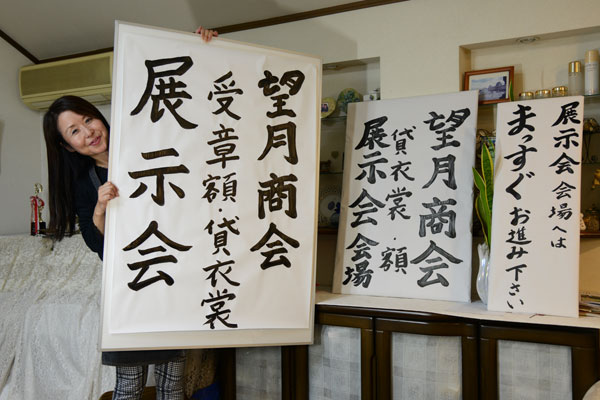 望月商会
受章額・貸衣裳
展示会
望月商会
貸衣裳・額
展示会会場
展示会会場へは
まっすぐお進み下さい